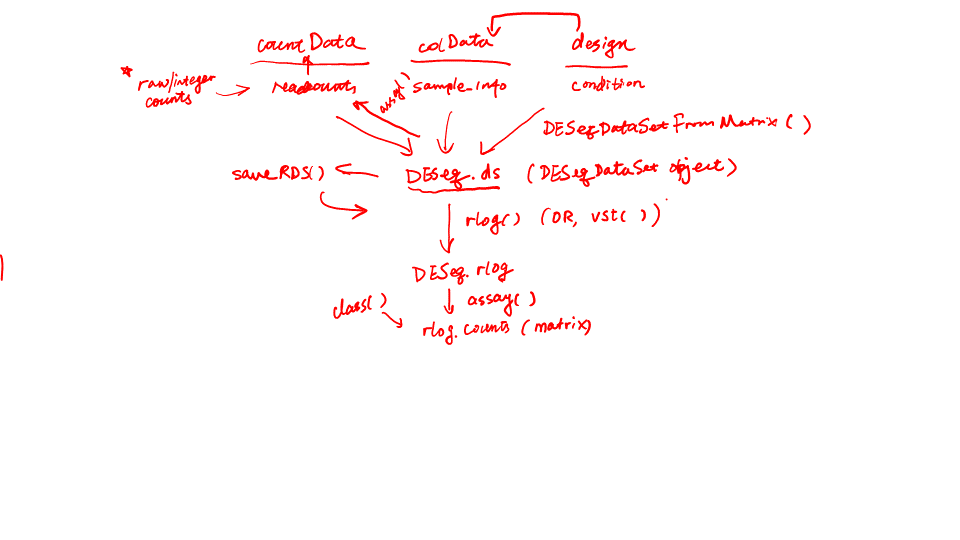 countData colData design
* raw/integer counts
readcounts
assay()
sample_info
condition
DESeqDataSetFromMatrix()
saveRDS()
DESeq.ds (DESeqDataSet object)
rlog() (OR, vst())
DESeq.rlog
assay()
class()
rlog.counts (matrix)